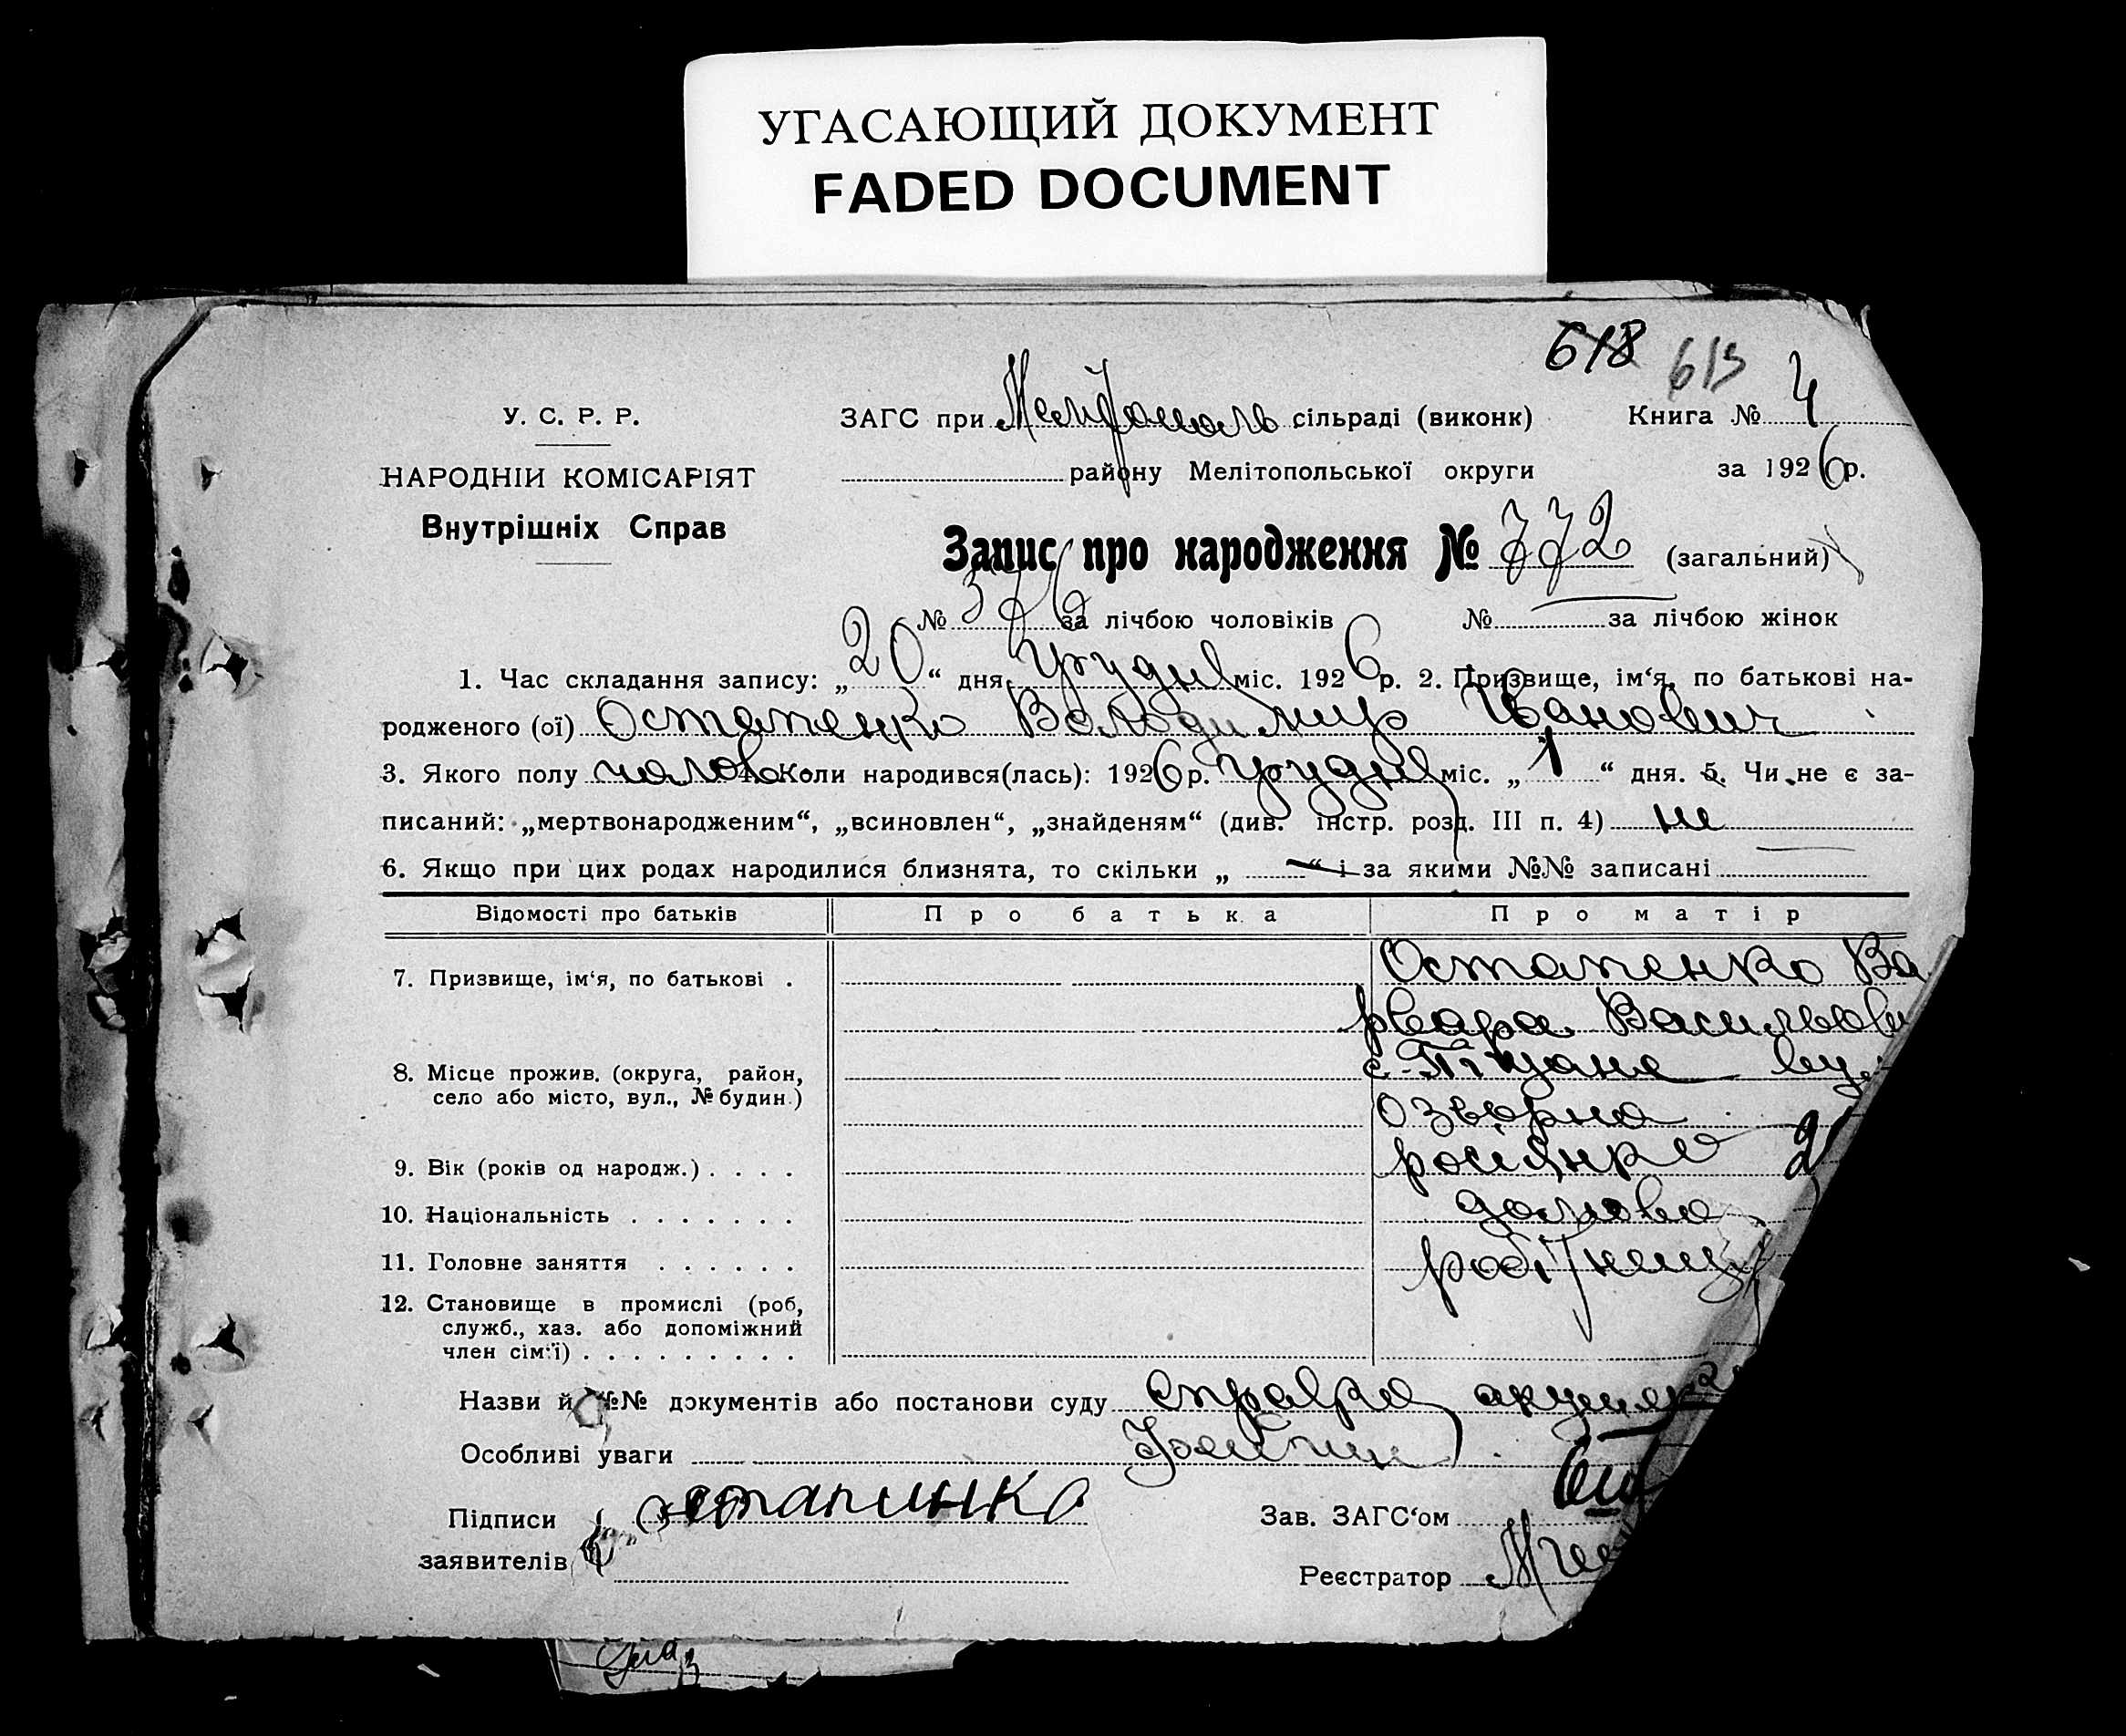 УГАСАЮЩИЙ ДОКУМЕНТ
FADED DOCUMENT
618 613
У. С. Р. Р.
ЗАГС при сільраді (виконк) Книга № 4
НАРОДНІЙ КОМІСАРІЯТ
району Мелітопольської округи за 1926 р.
Внутрішніх Справ
Запис про народження № 772 (загальний)
№ 376 за лічбою чоловіків № за лічбою жінок
1. Час складання запису: „20“ дня грудня міс. 1926 р. 2. Призвище, ім‘я, по батькові на-
родженого (ої) Остапенко Володимир Іванович
3. Якого полу чолов 4. Коли народився(лась): 1926 р. грудня міс. „1“ дня. 5. Чи не є за-
писаний: „мертвонародженим“, „всиновлен“, „знайденям“ (див. інстр. розд. III п. 4) ні
6. Якщо при цих родах народилися близнята, то скільки „ “ і за якими №№ записані
Відомості про батьків Про батька Про матір
7. Призвище, ім‘я, по батькові . Остапенко Ва
рвара Васильов
8. Місце прожив. (округа, район,
село або місто, вул., № будин.)
с. Піщане вул
9. Вік (років од народж.) . . . .
росіянка 2
10. Національність . . . . . . .
домова
11. Головне заняття . . . . . .
робітниц
12. Становище в промислі (роб,
служб., хаз. або допоміжний
член сім‘ї) . . . . . . . . .
Назви й №№ документів або постанови суду справка акушерк
Особливі уваги
Підписи Остапинко
Зав. ЗАГС‘ом
заявителів
Реєстратор